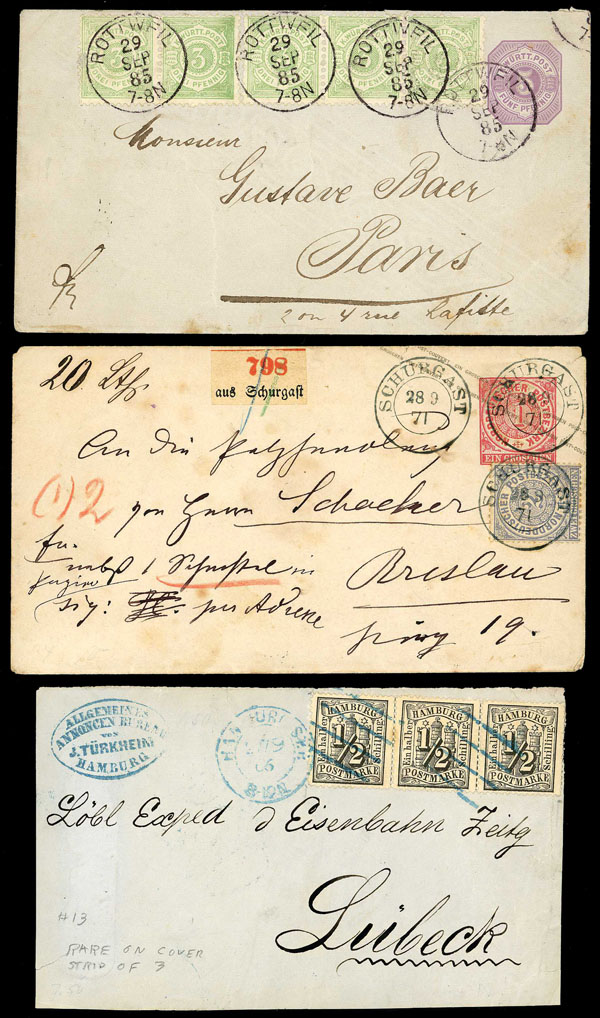 ROTTWEIL
29
SEP
85
7-8N
ROTTWEIL
29
SEP
85
7-8N
ROTTWEIL
29
SEP
85
7-8N
ROTTWEIL
29
SEP
85
7-8N
K. WÜRTT. POST
3
DREI PFENNIG
K. WÜRTT. POST
5
FÜNF PFENNIG
Monsieur
Gustave Baer
Paris
2 ou 4 rue Lafitte
20 Lth.
798
aus Schurgast
SCHURGAST
28 9
71
SCHURGAST
28 9
71
EIN GROSCHEN
SCHURGAST
28 9
71
NORDDEUTSCHER POSTBEZIRK
An die
von Herrn
(1) 2
1
in
Breslau
per Adresse
19.
ALLGEMEINES
ANNONCEN BUREAU
von
J. TÜRKHEIM
HAMBURG
HAMBURG
HAMBURG
Ein halber
1/2
Schilling
POSTMARKE
HAMBURG
Ein halber
1/2
Schilling
POSTMARKE
HAMBURG
Ein halber
1/2
Schilling
POSTMARKE
Löbl Exped d Eisenbahn Zeitg
Lübeck
#13
RARE ON COVER
STRIP OF 3
7.50